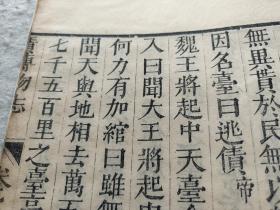 無異貰於民無
因名臺曰逃債
帝
魏王將起中天臺
入曰聞大王將起中
何力有加綰曰雖無
聞天與地相去萬五
七千五百里之臺
廣博物志